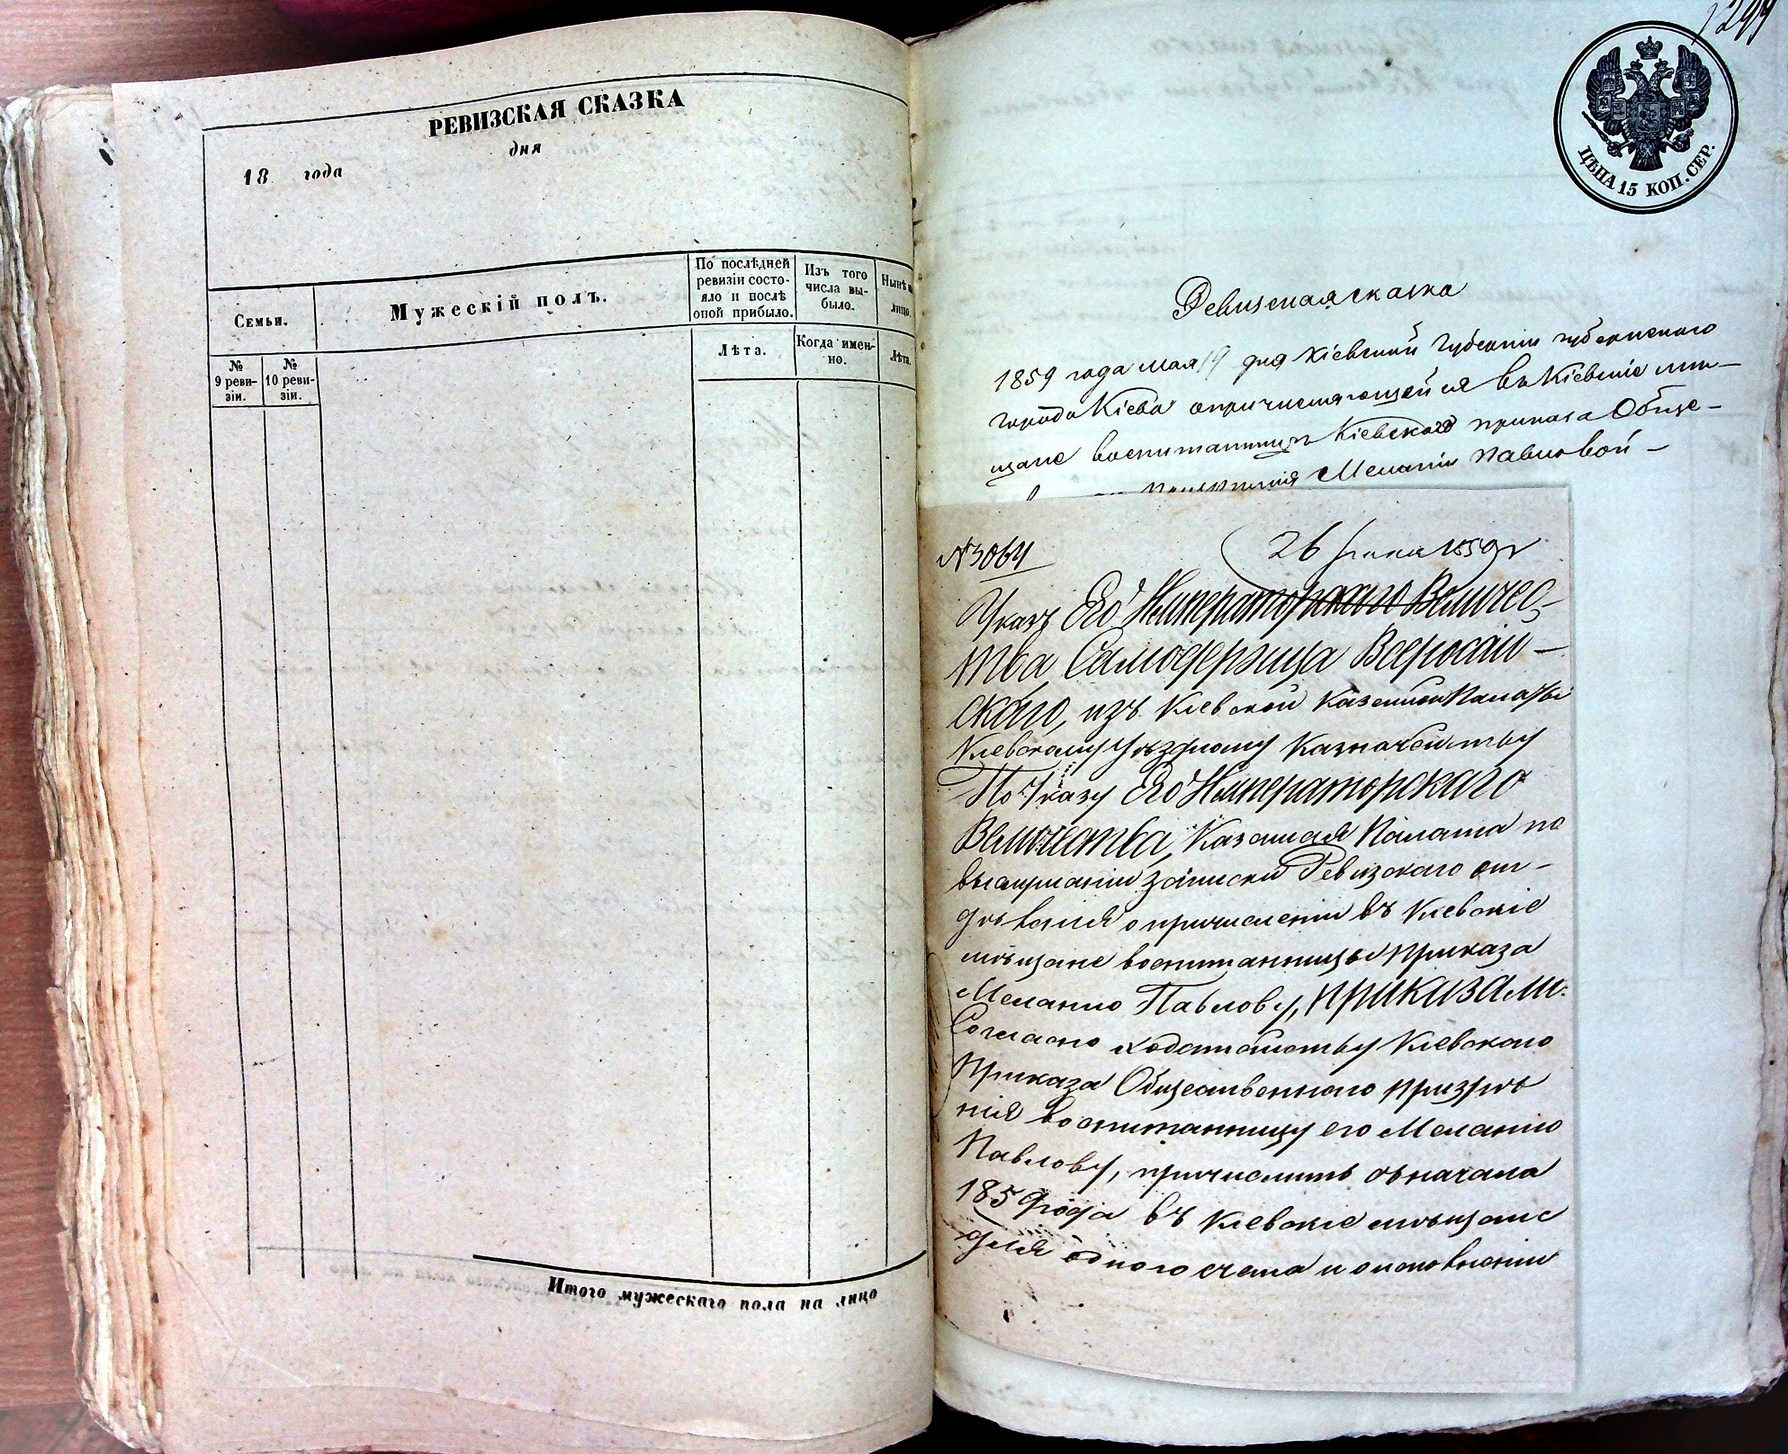 РЕВИЗСКАЯ СКАЗКА
18 года
дня
Семьи.
Мужескій полъ.
По послѣдней ревизіи состо-
яло и послѣ оной прибыло.
Изъ того числа вы-
было.
Нынѣ на
лицо.
№ 9 реви-
зіи.
№ 10 реви-
зіи.
Лѣта.
Когда имен-
но.
Лѣта.
Итого мужескаго пола на лицо
1299
ЦѢНА 15 КОП. СЕР.
Ревизская сказка
1859 года мая 19 дня Кіевской Губерніи губернскаго
города Кіева о причисляющейся въ Кіевскіе мѣ-
щане воспитанницѣ Кіевскаго приказа Обще-
призрѣнія Меланіи Павловой
№ 3064
26 1859 г
Указъ Его Императорскаго Величес-
тва Самодержца Всеросій-
скаго, изъ Кіевской Казенной Палаты
Кіевскому Уѣздному Казначейству
По Указу Его Императорскаго
Величества, Казенная Палата по
выслушаніи записки Ревизскаго от-
дѣленія о причисленіи въ Кіевскіе
мѣщане воспитанницы Приказа
Меланію Павлову, приказали:
Согласно ходатайству Кіевскаго
Приказа Общественнаго призрѣ
нія воспитанницу его Меланію
Павлову, причислить съ начала
1859 года въ Кіевскіе мѣщане
для одного счета и о исполненіи